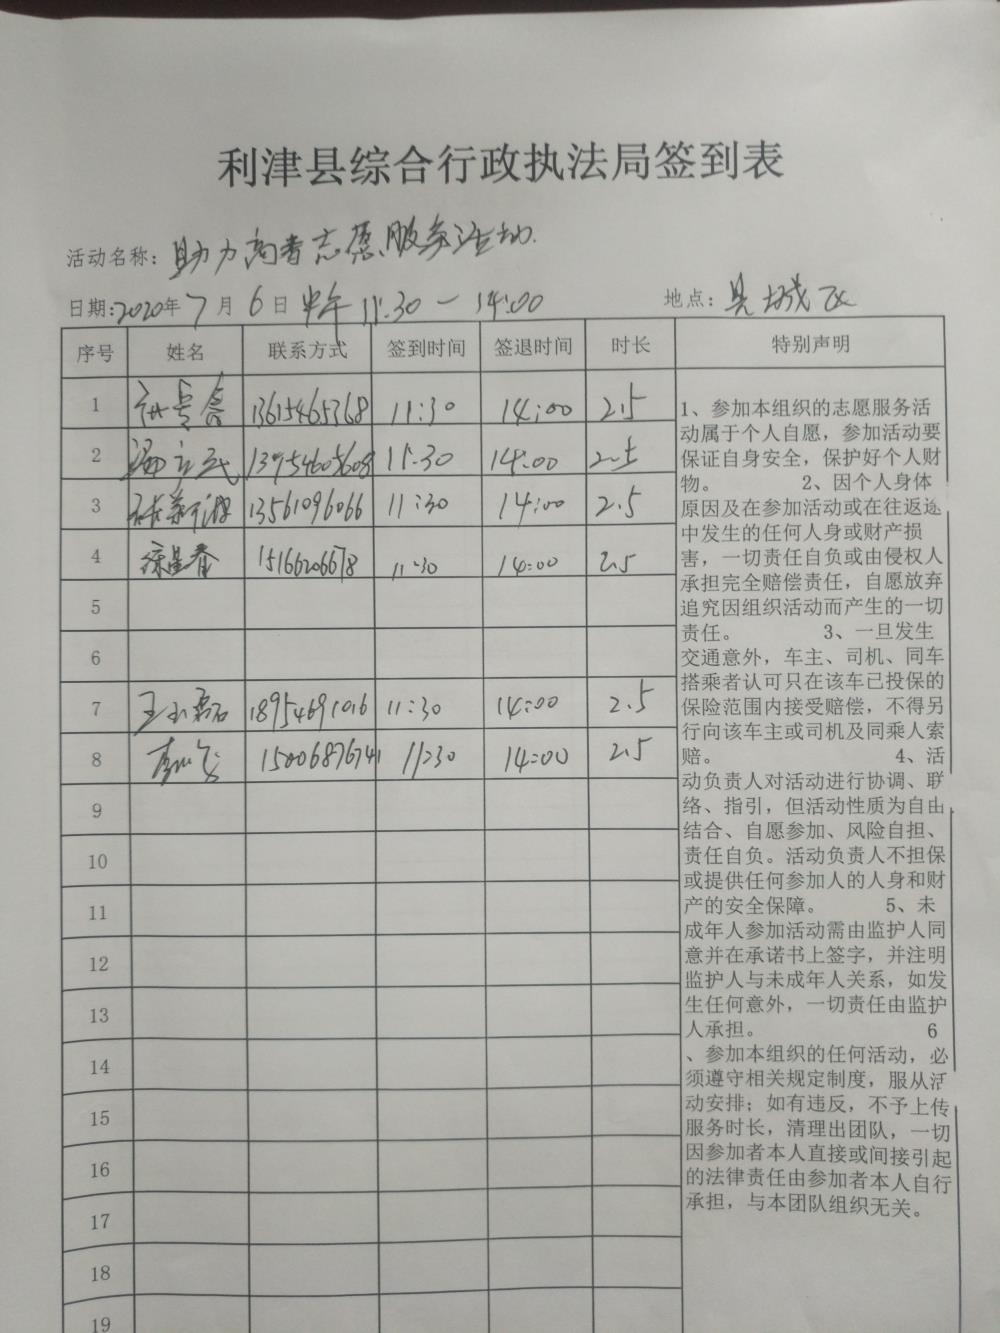 利津县综合行政执法局签到表
活动名称：助力高考志愿服务活动.
日期：2020年7月6日 中午 11:30 — 14:00 地点：县城区
序号 姓名 联系方式 签到时间 签退时间 时长 特别声明
1 13615465368 11:30 14:00 2.5
2 13954605608 11:30 14:00 2.5
3 13561096066 11:30 14:00 2.5
4 15166206678 11:30 14:00 2.5
5
6
7 王玉磊 18954691016 11:30 14:00 2.5
8 15006876741 11:30 14:00 2.5
9
10
11
12
13
14
15
16
17
18
19
1、参加本组织的志愿服务活
动属于个人自愿，参加活动要
保证自身安全，保护好个人财
物。 2、因个人身体
原因及在参加活动或在往返途
中发生的任何人身或财产损
害，一切责任自负或由侵权人
承担完全赔偿责任，自愿放弃
追究因组织活动而产生的一切
责任。 3、一旦发生
交通意外，车主、司机、同车
搭乘者认可只在该车已投保的
保险范围内接受赔偿，不得另
行向该车主或司机及同乘人索
赔。 4、活
动负责人对活动进行协调、联
络、指引，但活动性质为自由
结合、自愿参加、风险自担、
责任自负。活动负责人不担保
或提供任何参加人的人身和财
产的安全保障。 5、未
成年人参加活动需由监护人同
意并在承诺书上签字，并注明
监护人与未成年人关系，如发
生任何意外，一切责任由监护
人承担。 6
、参加本组织的任何活动，必
须遵守相关规定制度，服从活
动安排；如有违反，不予上传
服务时长，清理出团队，一切
因参加者本人直接或间接引起
的法律责任由参加者本人自行
承担，与本团队组织无关。